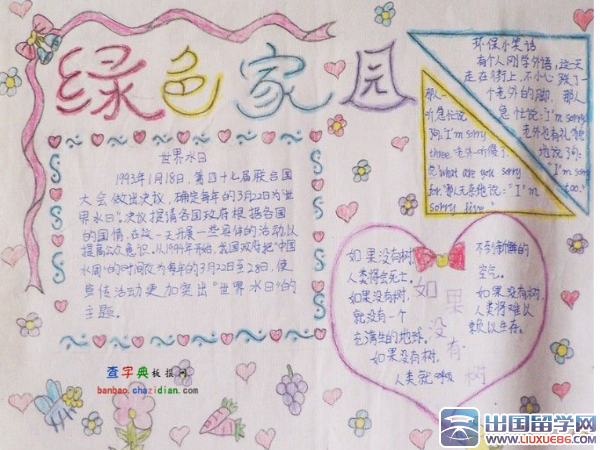 绿色家园
世界水日
1993年1月18日,第四十七届联合国
大会做出决议,确定每年的3月22日为"世
界水日"。决议提请各国政府根据各国
的国情,在这一天开展一些具体的活动以
提高公众意识。从1994年开始,我国政府把"中国
水周"的时间改为每年的3月22日至28日,使
宣传活动更加突出"世界水日"的
主题。
环保小笑话
有个人刚学外语,这天
走在街上,不小心踩了一
个老外的脚,那人
急忙说:"I'm sorry
老外也有礼貌
地说了句:
"I'm sorry
too."
那人一
听急忙说
句:I'm sorry
three.老外一听傻了,
说"what are you sorry
for."那人无奈地说:"I'm
sorry five."
如果没有树,
人类将会死亡。
如果没有树,
就没有一个
充满生的地球。
如果没有树,
人类就呼吸
不到新鲜的
空气。
如果没有树,
人类将难以
赖以生存。
如果没有树
查字典板报网
banbao.chazidian.com
出国留学网
WWW.LIUXUE86.COM